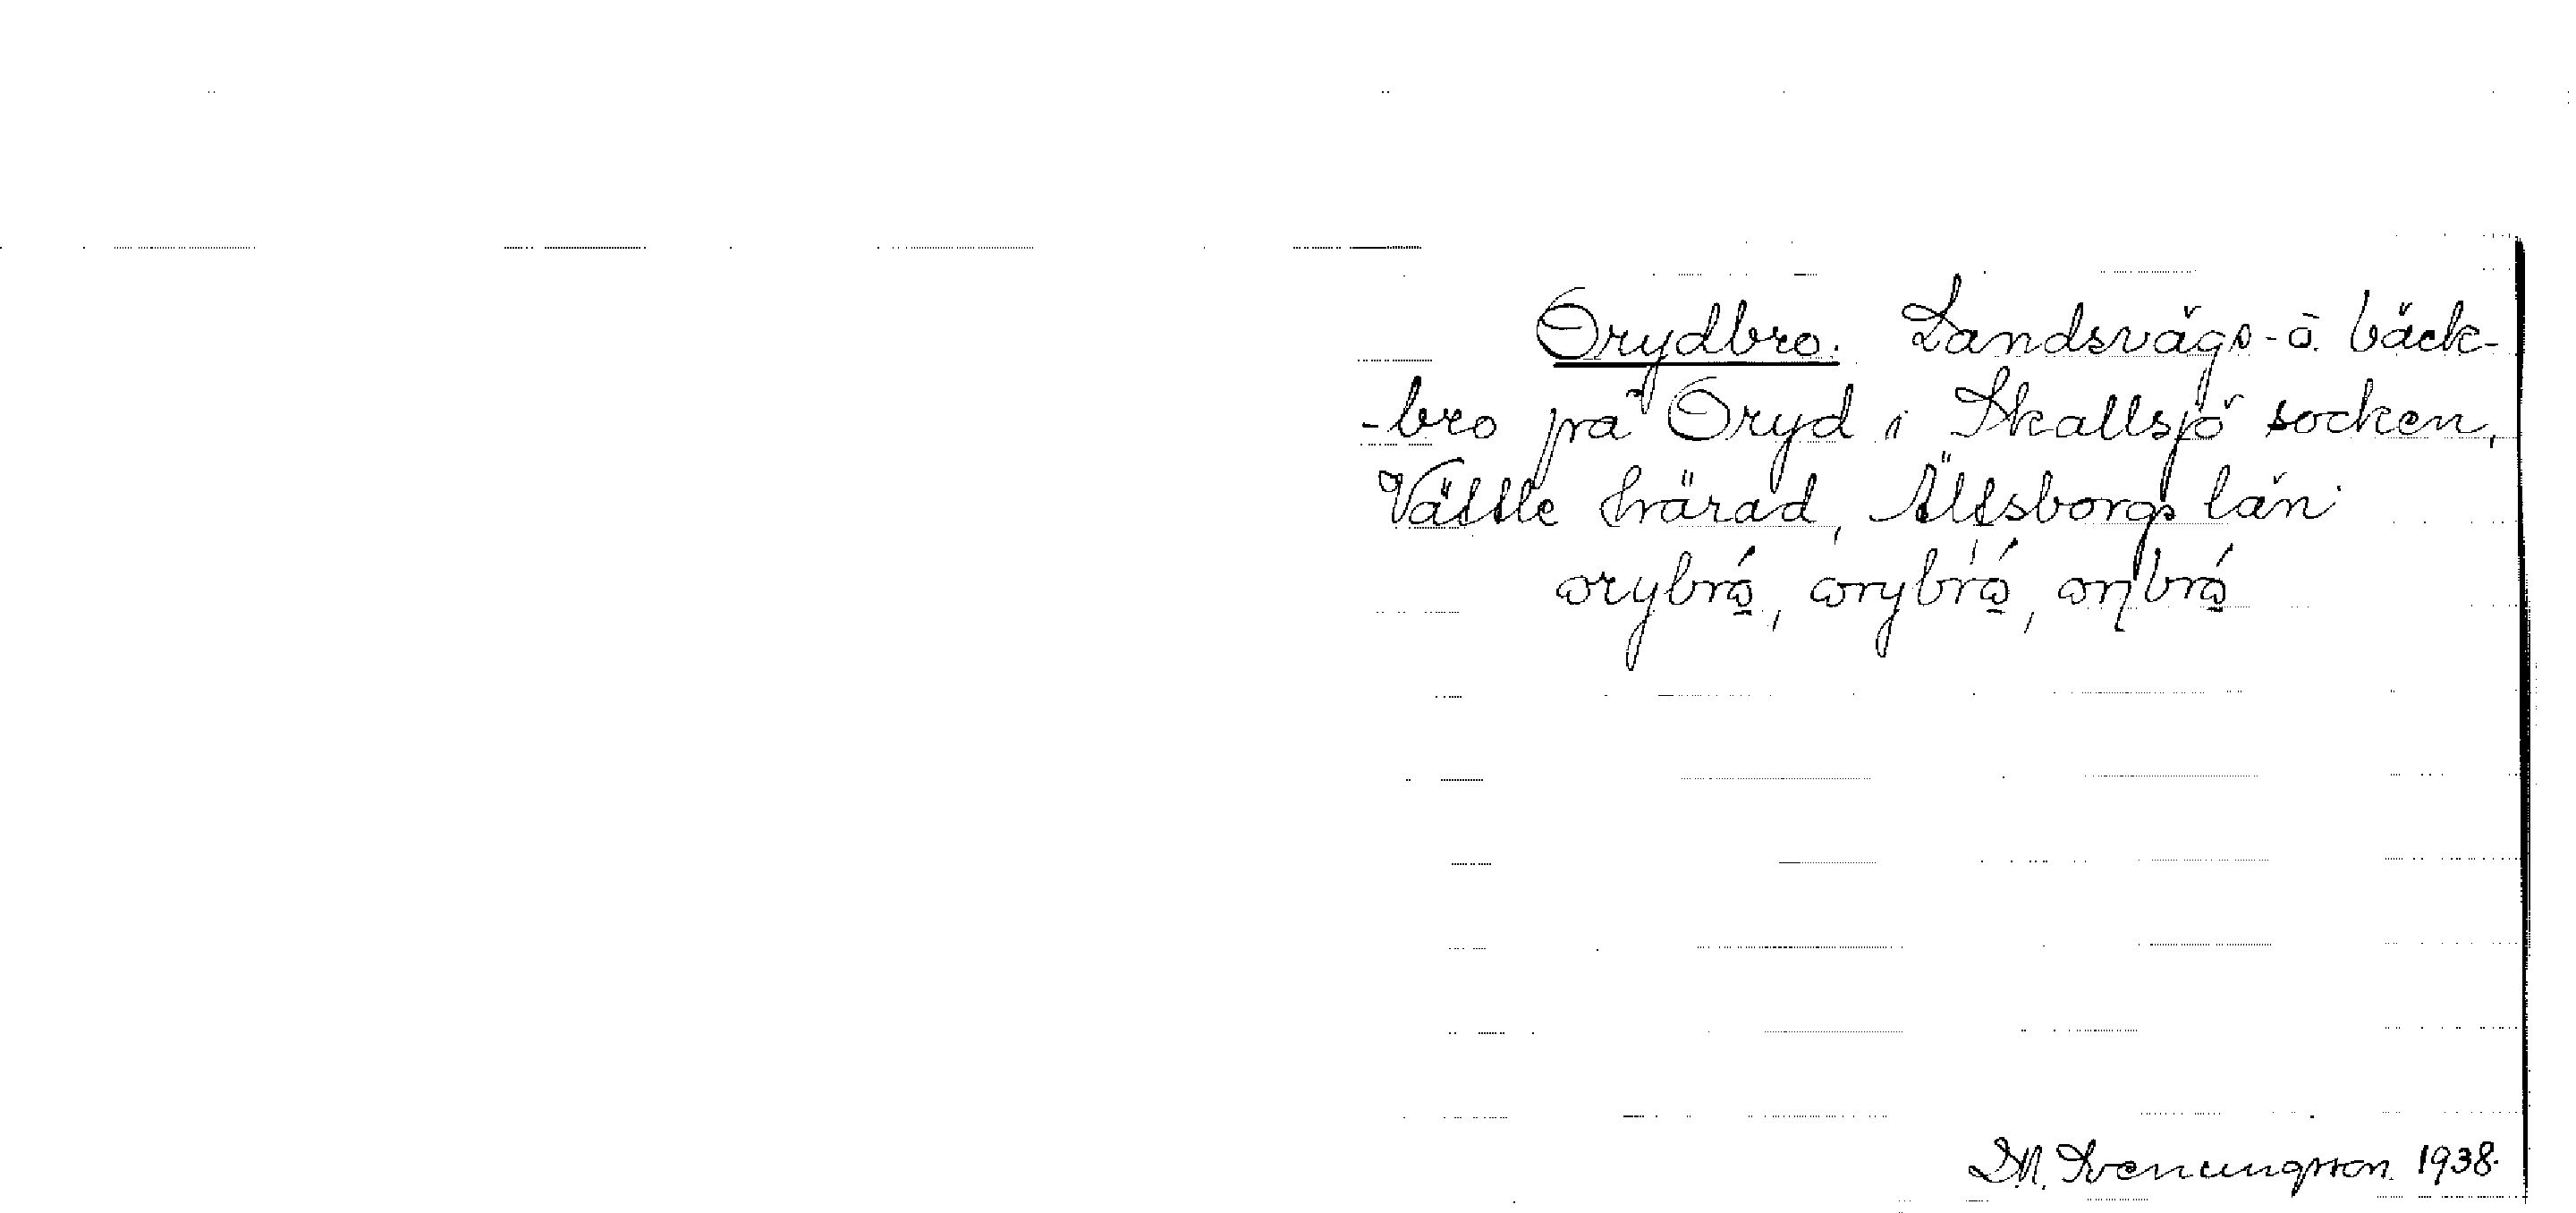 Orydbro. Landsvägs- o. bäck-
-bro på Oryd i Skallsjö socken,
Vättle härad, Älfsborgs län
orybró, orybró, orbró
D.N. Svenungsson. 1938.